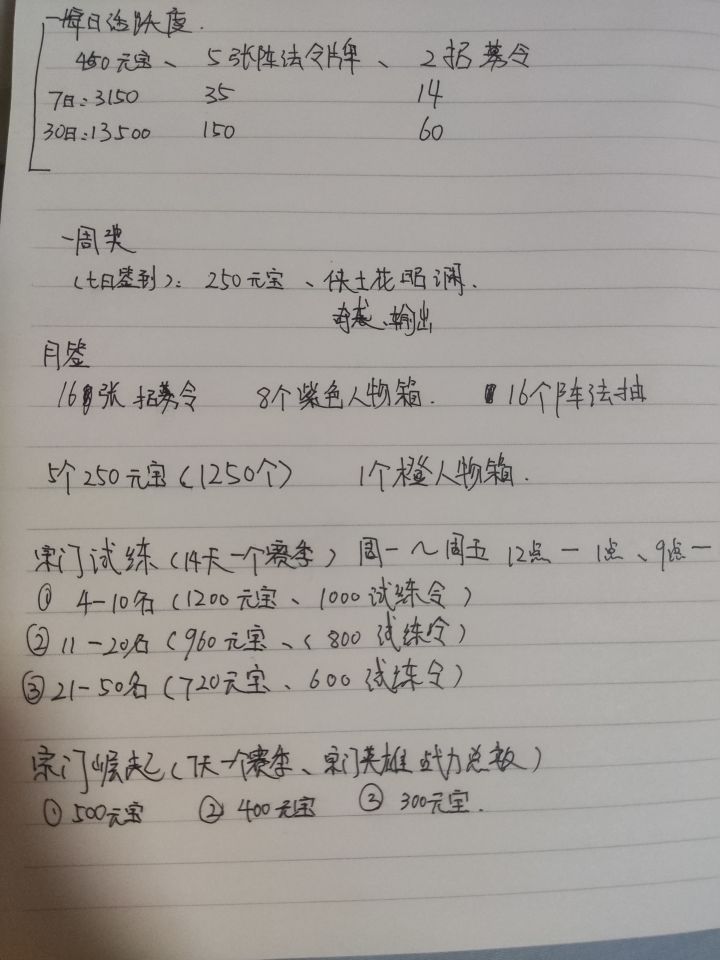 每日活跃度.
450元宝、5张阵法令牌、2招募令
7日:3150 35 14
30日:13500 150 60
一周奖
(七日签到): 250元宝、侠士花昭澜.
奇袭、输出
月签
16张招募令 8个紫色人物箱. 16个阵法抽
5个250元宝(1250个) 1个橙人物箱.
宗门试练(14天一个赛季)周一~周五 12点-1点、9点-
① 4-10名(1200元宝、1000试练令)
② 11-20名(960元宝、(800试练令)
③ 21-50名(720元宝、600试练令)
宗门崛起(7天一个赛季、宗门英雄战力总数)
① 500元宝 ② 400元宝 ③ 300元宝.